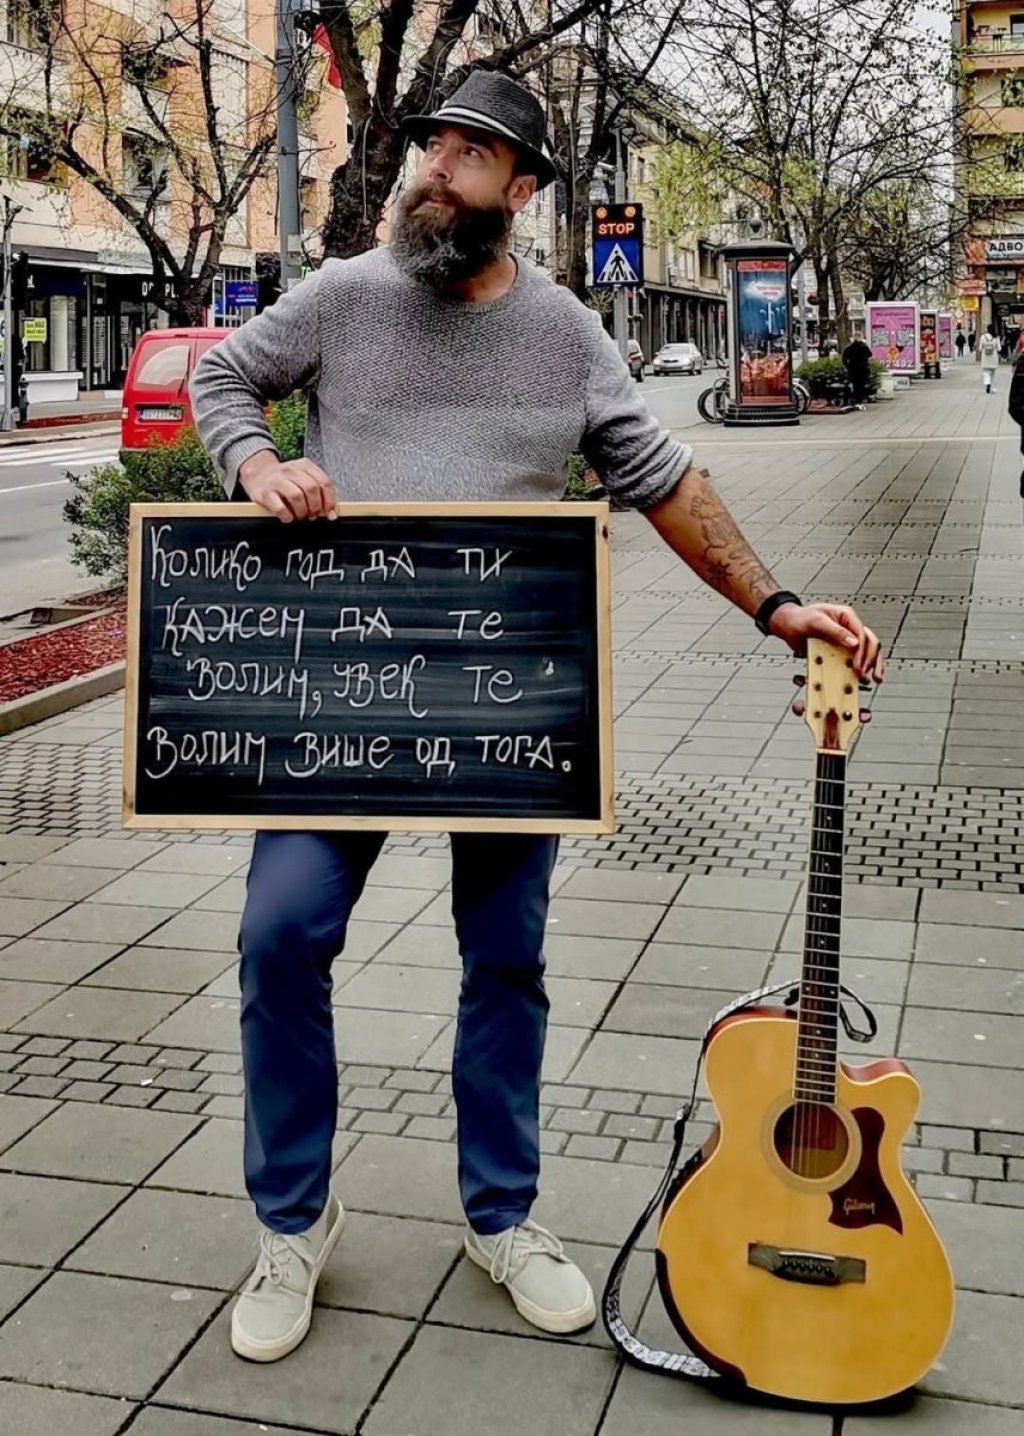 STOP
АДВО
Колико год да ти
кажем да те
волим, увек те
волим више од тога.
Gibson